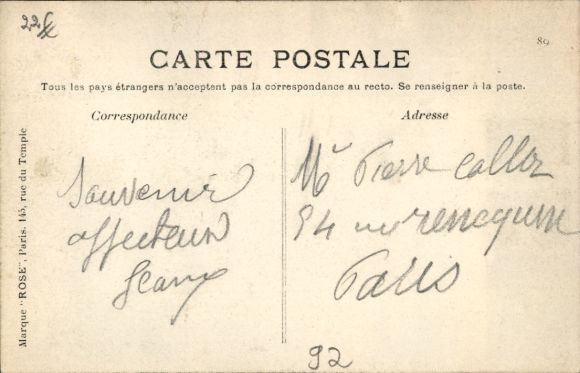 22
89
CARTE POSTALE
Tous les pays étrangers n'acceptent pas la correspondance au recto. Se renseigner à la poste.
Correspondance
Adresse
Souvenir
affectueux
Jeanne
Mr Pierre
94 rue
Paris
92
Marque "ROSE", Paris. 145, rue du Temple